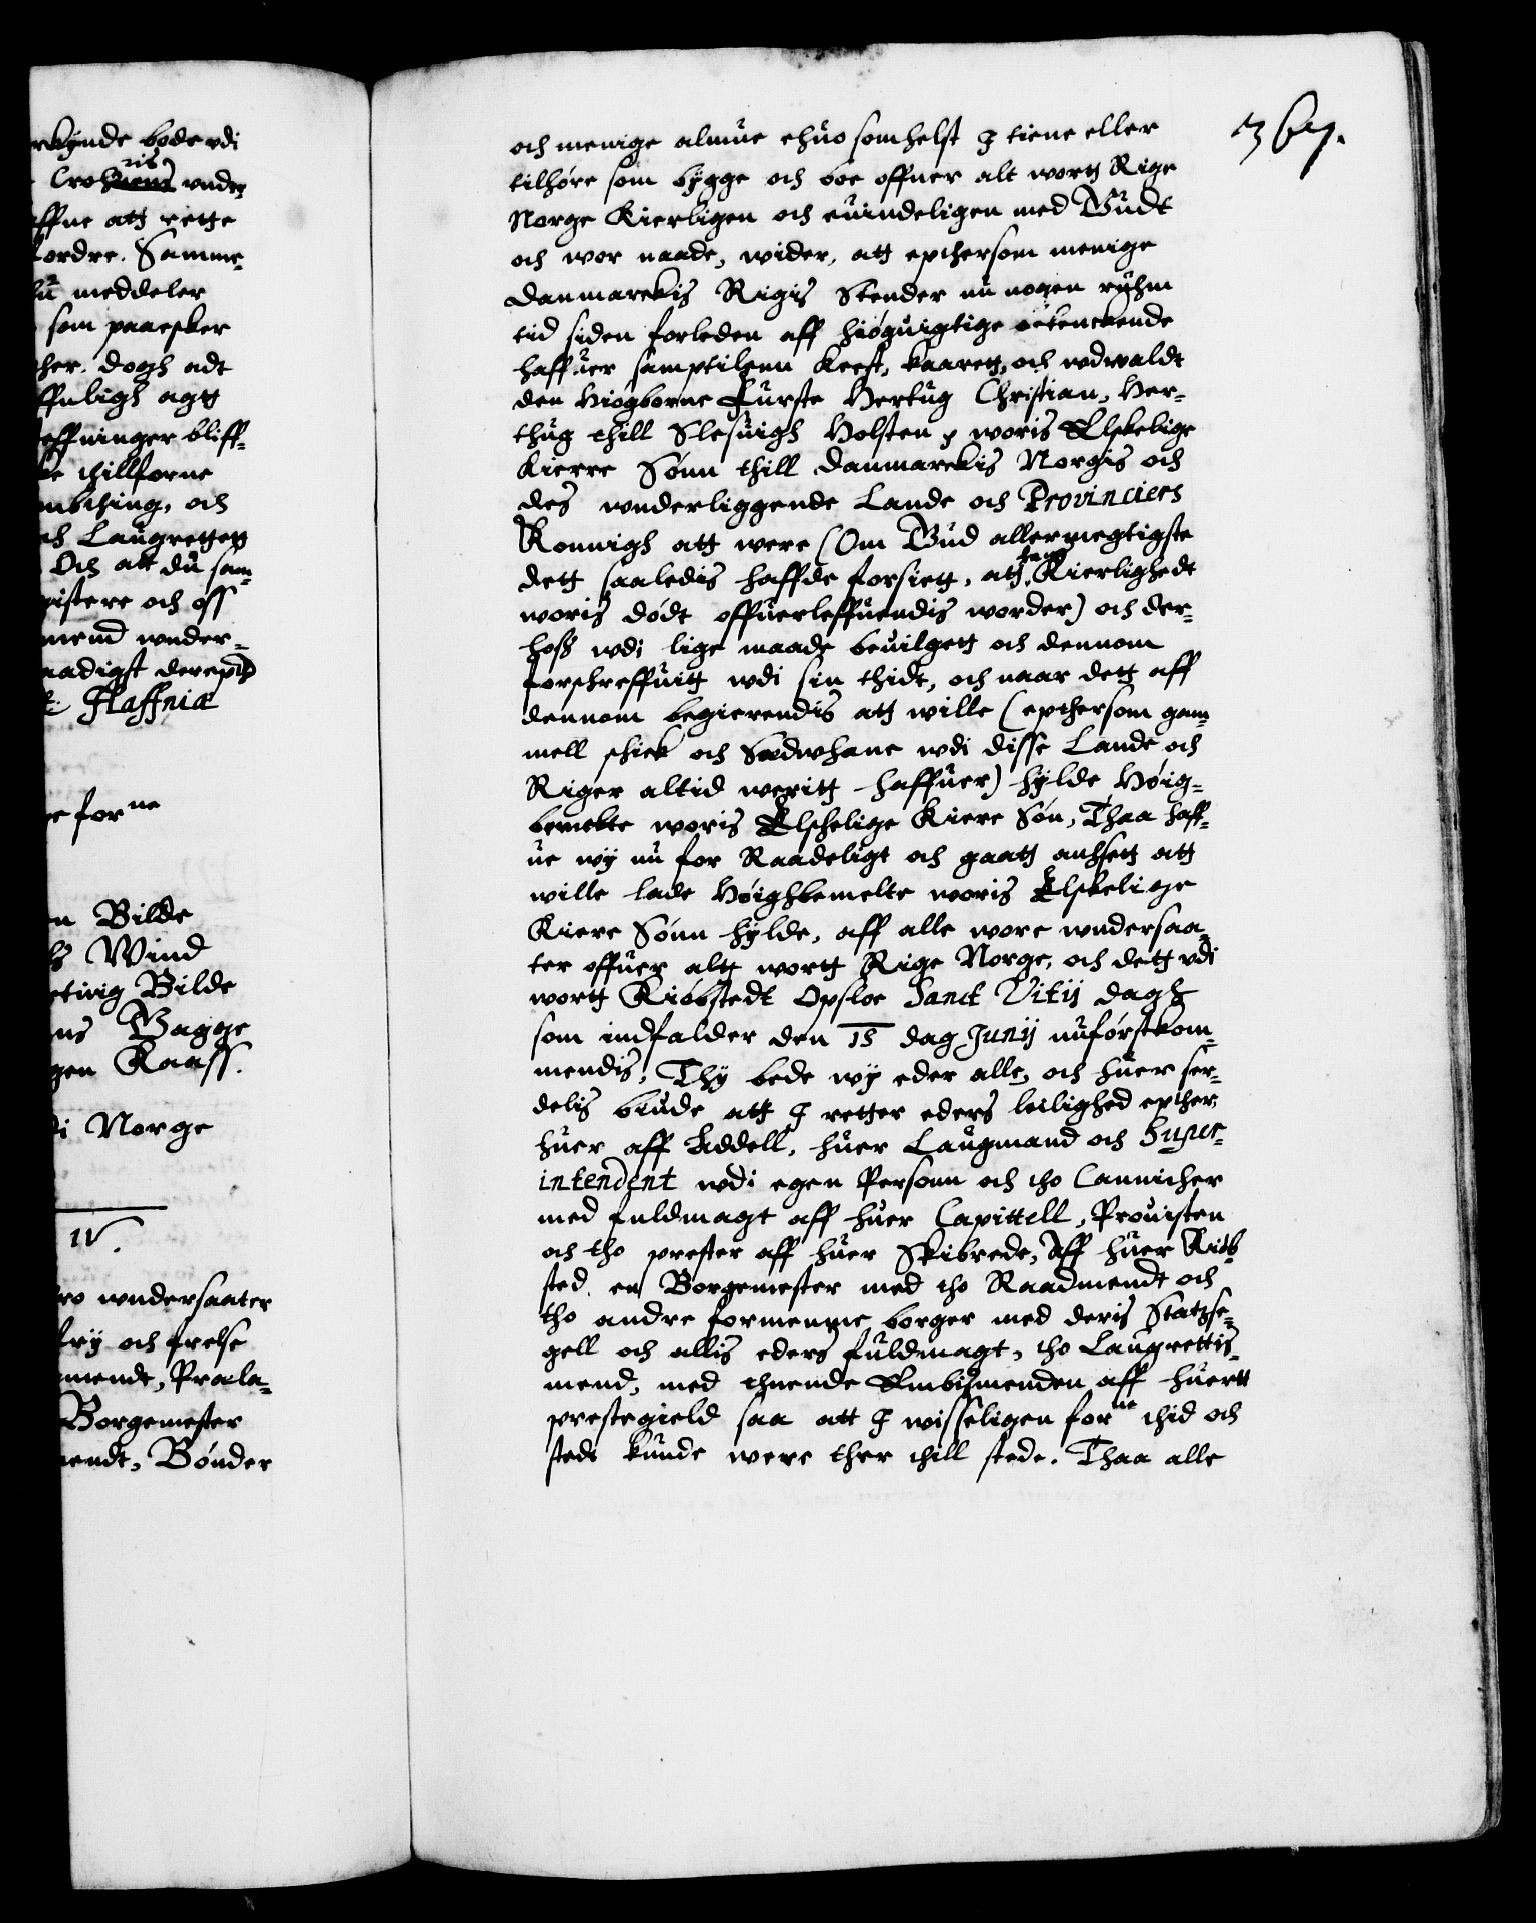 rkynde bode vdi
ris
Crohnens vnder
ffne att rette
fordre. Samme
meddeler
som paaesker
her. dogh adt
ffuligh agtt
effninger bliff-
thillforne
mbthing, och
ch Laugrettett
Och att du sam-
gistere och oss
mend wnder-
naadigst derepther
Haffniæ
forne
n Bilde
Wind
Bilde
ns Bagge
gen Kaass.
di Norge
IV.
ro wndersaater
fry och frelse
mendt, Præla-
Borgemester
endt, Bønder
367.
och menige almue ehuo somhelst I tiene eller
tilhøre som bygge och boe offuer alt wortt Rige
Norge Kierligen och euindeligen med Gudt
och wor naade, wider, att epthersom menige
Danmarckis Rigis Stender nu nogen ryhm
tid siden forleden aff høguigtige betenckende
haffuer samptligenn Keest, kaarett, och vdwaldt
den Høgborne Furste Hertug Christian, Her-
thug thill Slesuigh Holsten p woris Elskelige
Kierre Sønn thill Danmarckis Norgis och
des wnderliggende Lande och Provinciers
Konnigh att were (Om Gud allermegtigste
hans
dett saaledis haffde forsiett, att Kierlighedt
woris dødt offuerleffuendis worder) och der-
hoss wdi lige maade beuilgett och dennom
forschreffuitt wdi sin thidt, och naar dett aff
dennom begierendis att wille (epthersom gam-
mell schick och Sædwhane wdi disse Lande och
Riger altid weritt haffuer) hylde Høig-
bemelte woris Elschelige Kiere Søn, Thaa haff-
ue wy nu for Raadeligt och gaatt anhsett att
wille lade Høighbemelte woris Elskelige
Kiere Sønn hylde, aff alle wore wndersaa-
ter offuer altt wortt Rige Norge, och dett vdi
wortt Kiøbstedt Opsloe Sanct Vitij dagh
som indfalder den 15 dag Junij nuførstkom-
mendis, Thy bede wy eder alle, och huer ser-
delis biude att I retter eders leilighed epther,
huer aff Addell, huer Laugmand och Super-
intendent wdi egen Personn och tho Cannicher
med fuldmagt aff huer Capittell, Prouisten
och tho prester aff huer Skibrede, Aff huer Kiøb-
sted, en Borgemester med tho Raadmendt och
tho andre formenne borger med deris Statzse-
gell och allis eders fuldmagt, tho Laugrettis-
mend, med thuende Embitzmenden aff huertt
prestegield saa att I wisseligen forne thid och
sted kunde were ther thill stede. Thaa alle